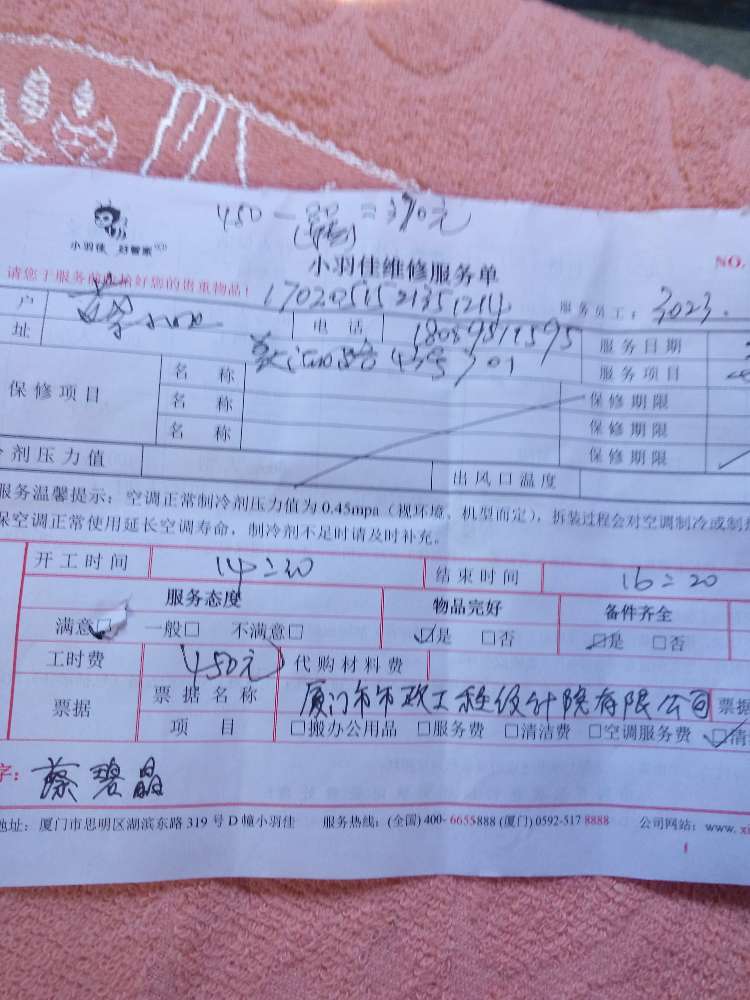 450 - = 370元
小羽佳 好管家
小羽佳维修服务单
NO.
请您于服务前 检好您的贵重物品!
1702051521351214
服务员工: 3023.
户
电话 18059511595
服务日期
址
43号701
服务项目
保修项目 名称 保修期限
名称 保修期限
名称 保修期限
剂压力值 出风口温度
服务温馨提示: 空调正常制冷剂压力值为0.45mpa (视环境、机型而定), 拆装过程会对空调制冷或制
保空调正常使用延长空调寿命, 制冷剂不足时请及时补充。
开工时间 14:20 结束时间 16:20
服务态度 物品完好 备件齐全
满意□ 一般□ 不满意□ ☑是 □否 ☑是 □否
工时费 450元 代购材料费
票据 票据名称 厦门市市政工程设计院有限公司 票据
项目 □搬办公用品 □服务费 □清洁费 □空调服务费 ☑清
字: 蔡碧晶
地址: 厦门市思明区湖滨东路319号D幢小羽佳 服务热线: (全国) 400-6655888 (厦门) 0592-517 8888 公司网站: www. xi